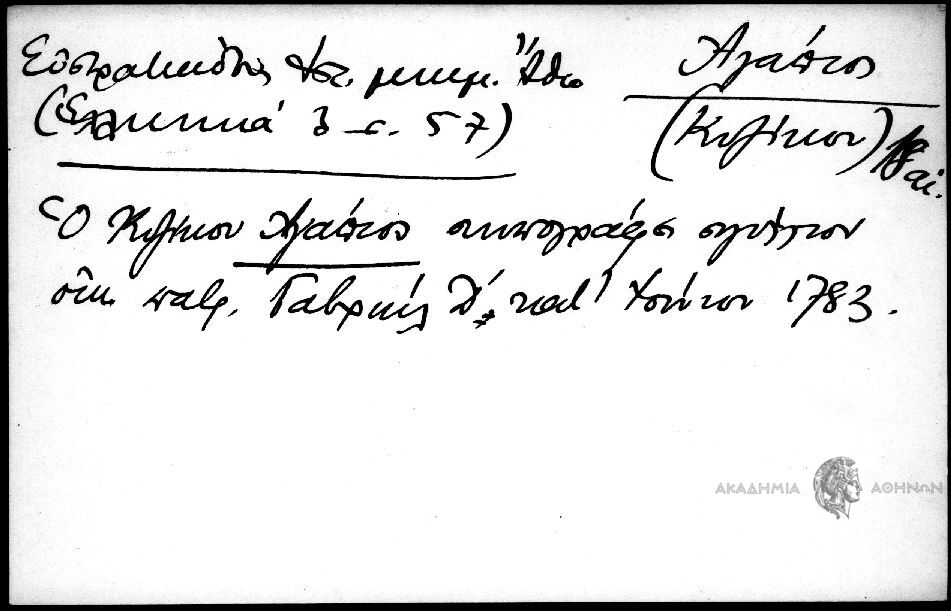 Εὐστρατιάδης Ἱστ. μνημ. Ἄθω
(Ἑλληνικά 3 σ. 57)
Ἀγάπιος
(Κυζίκου) 18 αἰ.
Ὁ Κυζίκου Ἀγάπιος συνυπογράφει σιγίλλιον
οἰκ. πατρ. Γαβριήλ Δ΄, κατ' Ἰούνιον 1783.
ΑΚΑΔΗΜΙΑ ΑΘΗΝΩΝ